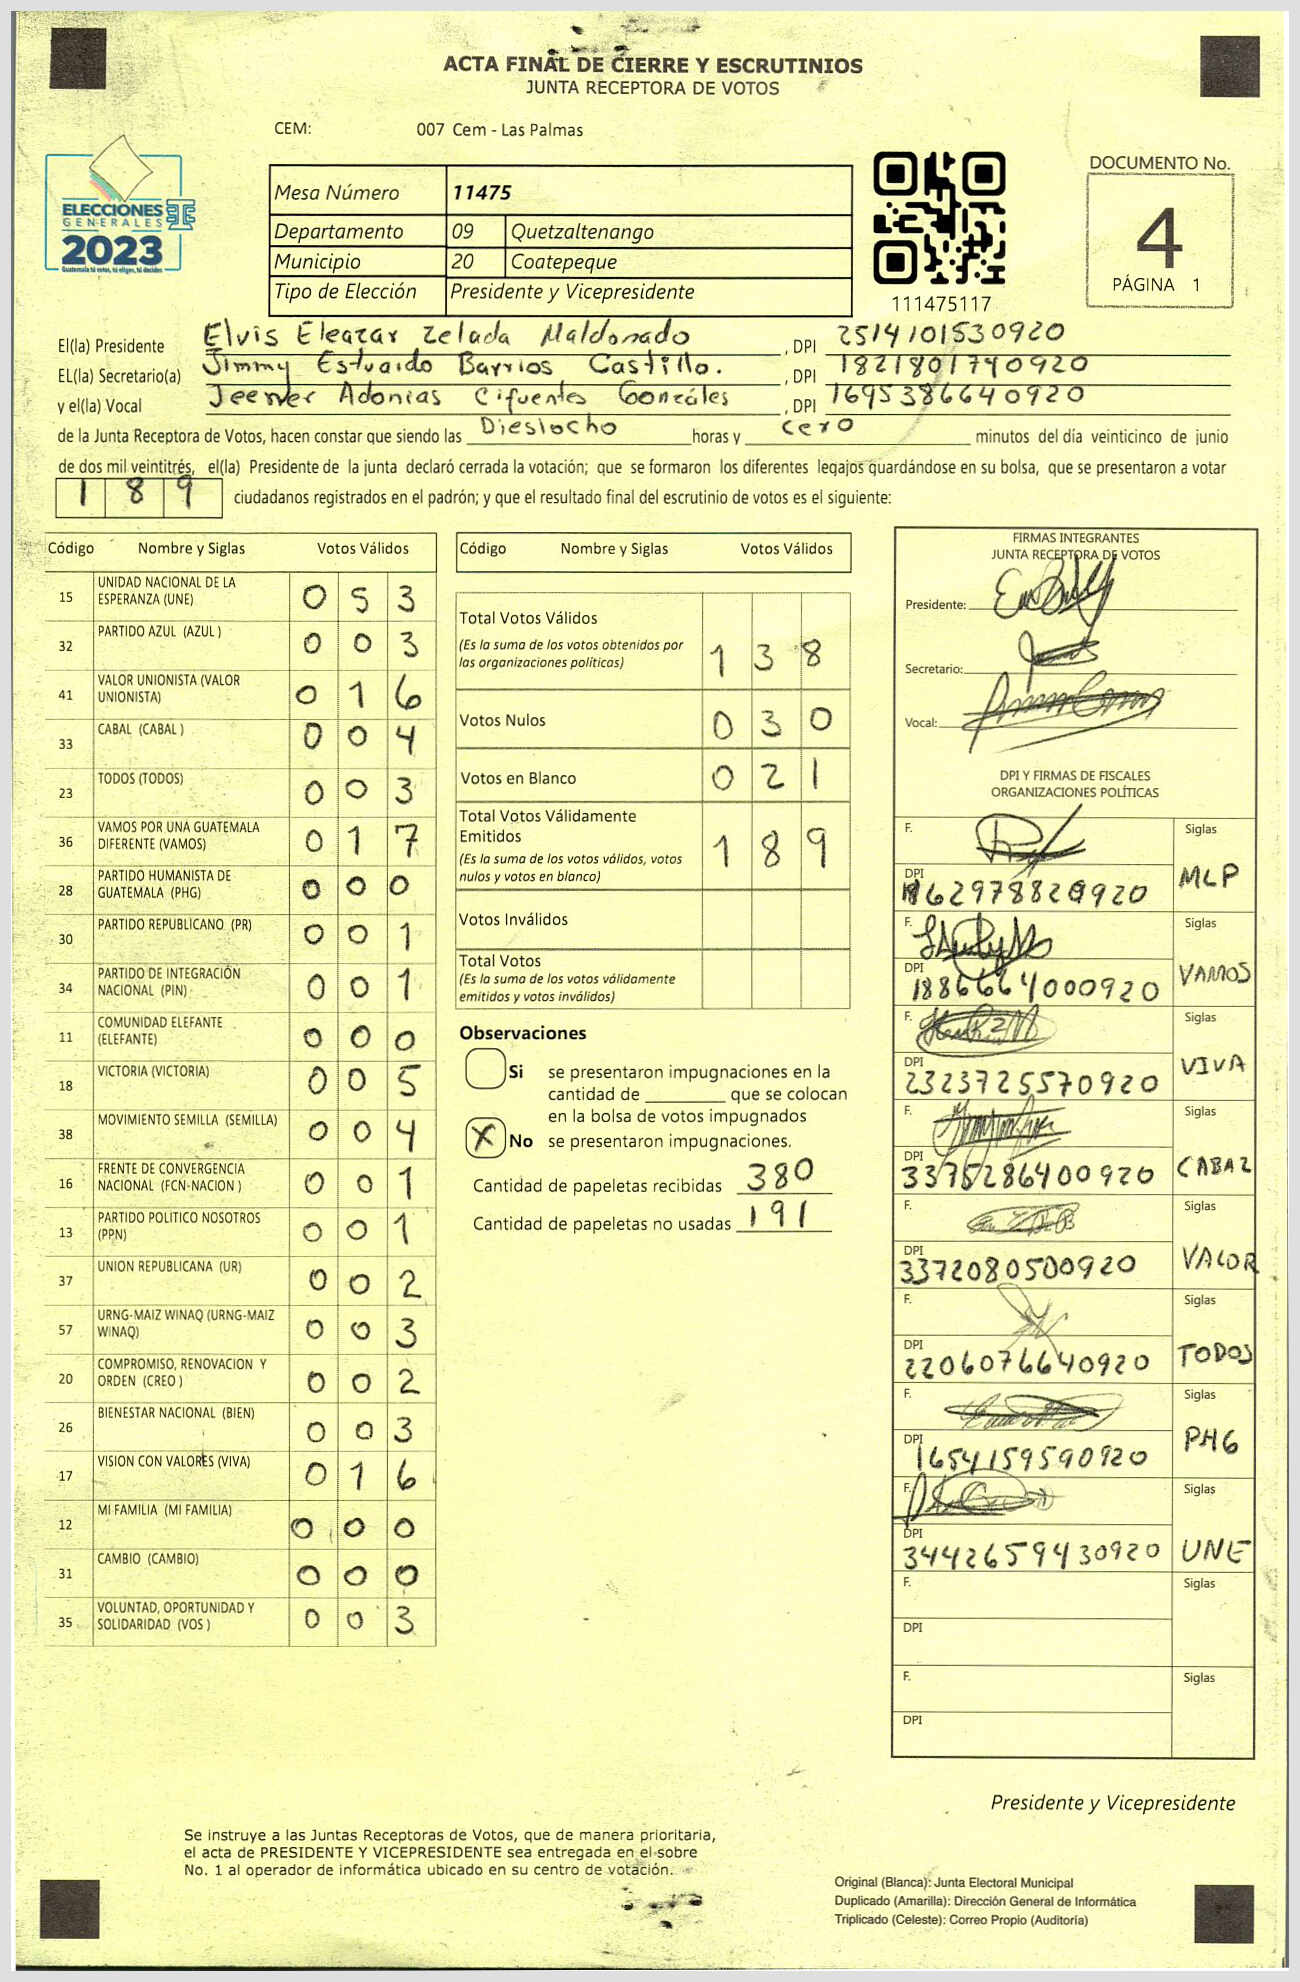 ACTA FINAL DE CIERRE Y ESCRUTINIOS
JUNTA RECEPTORA DE VOTOS
CEM: 007 Cem - Las Palmas
ELECCIONES
GENERALES
2023
Guatemala tú votas, tú eliges, tú decides
Mesa Número 11475
Departamento 09 Quetzaltenango
Municipio 20 Coatepeque
Tipo de Elección Presidente y Vicepresidente
111475117
DOCUMENTO No.
4
PÁGINA 1
El(la) Presidente Elvis Eleazar Zelada Maldonado, DPI 2514101530920
EL(la) Secretario(a) Jimmy Estuardo Barrios Castillo., DPI 1821801740920
y el(la) Vocal Jeemer Adonias Cifuentes Gonzáles, DPI 1695386640920
de la Junta Receptora de Votos, hacen constar que siendo las Diesiocho horas y cero minutos del día veinticinco de junio
de dos mil veintitrés, el(la) Presidente de la junta declaró cerrada la votación; que se formaron los diferentes legajos guardándose en su bolsa, que se presentaron a votar
189 ciudadanos registrados en el padrón; y que el resultado final del escrutinio de votos es el siguiente:
Código Nombre y Siglas Votos Válidos
15 UNIDAD NACIONAL DE LA ESPERANZA (UNE) 0 5 3
32 PARTIDO AZUL (AZUL ) 0 0 3
41 VALOR UNIONISTA (VALOR UNIONISTA) 0 1 6
33 CABAL (CABAL ) 0 0 4
23 TODOS (TODOS) 0 0 3
36 VAMOS POR UNA GUATEMALA DIFERENTE (VAMOS) 0 1 7
28 PARTIDO HUMANISTA DE GUATEMALA (PHG) 0 0 0
30 PARTIDO REPUBLICANO (PR) 0 0 1
34 PARTIDO DE INTEGRACIÓN NACIONAL (PIN) 0 0 1
11 COMUNIDAD ELEFANTE (ELEFANTE) 0 0 0
18 VICTORIA (VICTORIA) 0 0 5
38 MOVIMIENTO SEMILLA (SEMILLA) 0 0 4
16 FRENTE DE CONVERGENCIA NACIONAL (FCN-NACION ) 0 0 1
13 PARTIDO POLITICO NOSOTROS (PPN) 0 0 1
37 UNION REPUBLICANA (UR) 0 0 2
57 URNG-MAIZ WINAQ (URNG-MAIZ WINAQ) 0 0 3
20 COMPROMISO, RENOVACION Y ORDEN (CREO ) 0 0 2
26 BIENESTAR NACIONAL (BIEN) 0 0 3
17 VISION CON VALORES (VIVA) 0 1 6
12 MI FAMILIA (MI FAMILIA) 0 0 0
31 CAMBIO (CAMBIO) 0 0 0
35 VOLUNTAD, OPORTUNIDAD Y SOLIDARIDAD (VOS ) 0 0 3
Código Nombre y Siglas Votos Válidos
Total Votos Válidos
(Es la suma de los votos obtenidos por
las organizaciones políticas) 1 3 8
Votos Nulos 0 3 0
Votos en Blanco 0 2 1
Total Votos Válidamente
Emitidos
(Es la suma de los votos válidos, votos
nulos y votos en blanco) 1 8 9
Votos Inválidos
Total Votos
(Es la suma de los votos válidamente
emitidos y votos inválidos)
Observaciones
Si se presentaron impugnaciones en la
cantidad de ________ que se colocan
en la bolsa de votos impugnados
X No se presentaron impugnaciones.
Cantidad de papeletas recibidas 380
Cantidad de papeletas no usadas 191
FIRMAS INTEGRANTES
JUNTA RECEPTORA DE VOTOS
Presidente:
Secretario:
Vocal:
DPI Y FIRMAS DE FISCALES
ORGANIZACIONES POLÍTICAS
F. Siglas
DPI MLP
F. Siglas
DPI 1886664000920 VAMOS
F. Siglas
DPI 2323725570920 VIVA
F. Siglas
DPI 3375286400920 CABAL
F. Siglas
DPI 3372080500920 VALOR
F. Siglas
DPI 2206076640920 TODOS
F. Siglas
DPI 1654159590920 PHG
F. Siglas
DPI 3442659430920 UNE
F. Siglas
DPI
F. Siglas
DPI
Presidente y Vicepresidente
Se instruye a las Juntas Receptoras de Votos, que de manera prioritaria,
el acta de PRESIDENTE Y VICEPRESIDENTE sea entregada en el sobre
No. 1 al operador de informática ubicado en su centro de votación.
Original (Blanca): Junta Electoral Municipal
Duplicado (Amarilla): Dirección General de Informática
Triplicado (Celeste): Correo Propio (Auditoría)